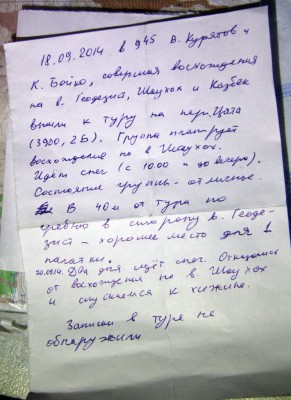 18.09.2014 в 945 В. Курятов и
К. Бойко, совершая восхождения
на в. Геодезий, Шаухох и Казбек
вышли к туру на пер. Цата
(3900, 2Б). Группа планирует
восхождение на в. Шаухох.
Идёт снег (с 10.00 и до вечера).
Состояние группы - отличное.
В 40м от тура по
гребню в сторону в. Геоде-
зий - хорошее место для 1
палатки.
20.09.14. Два дня идёт снег. Отказались
от восхождения на в. Шаухох
и спускаемся к хижине.
Записки в туре не
обнаружили